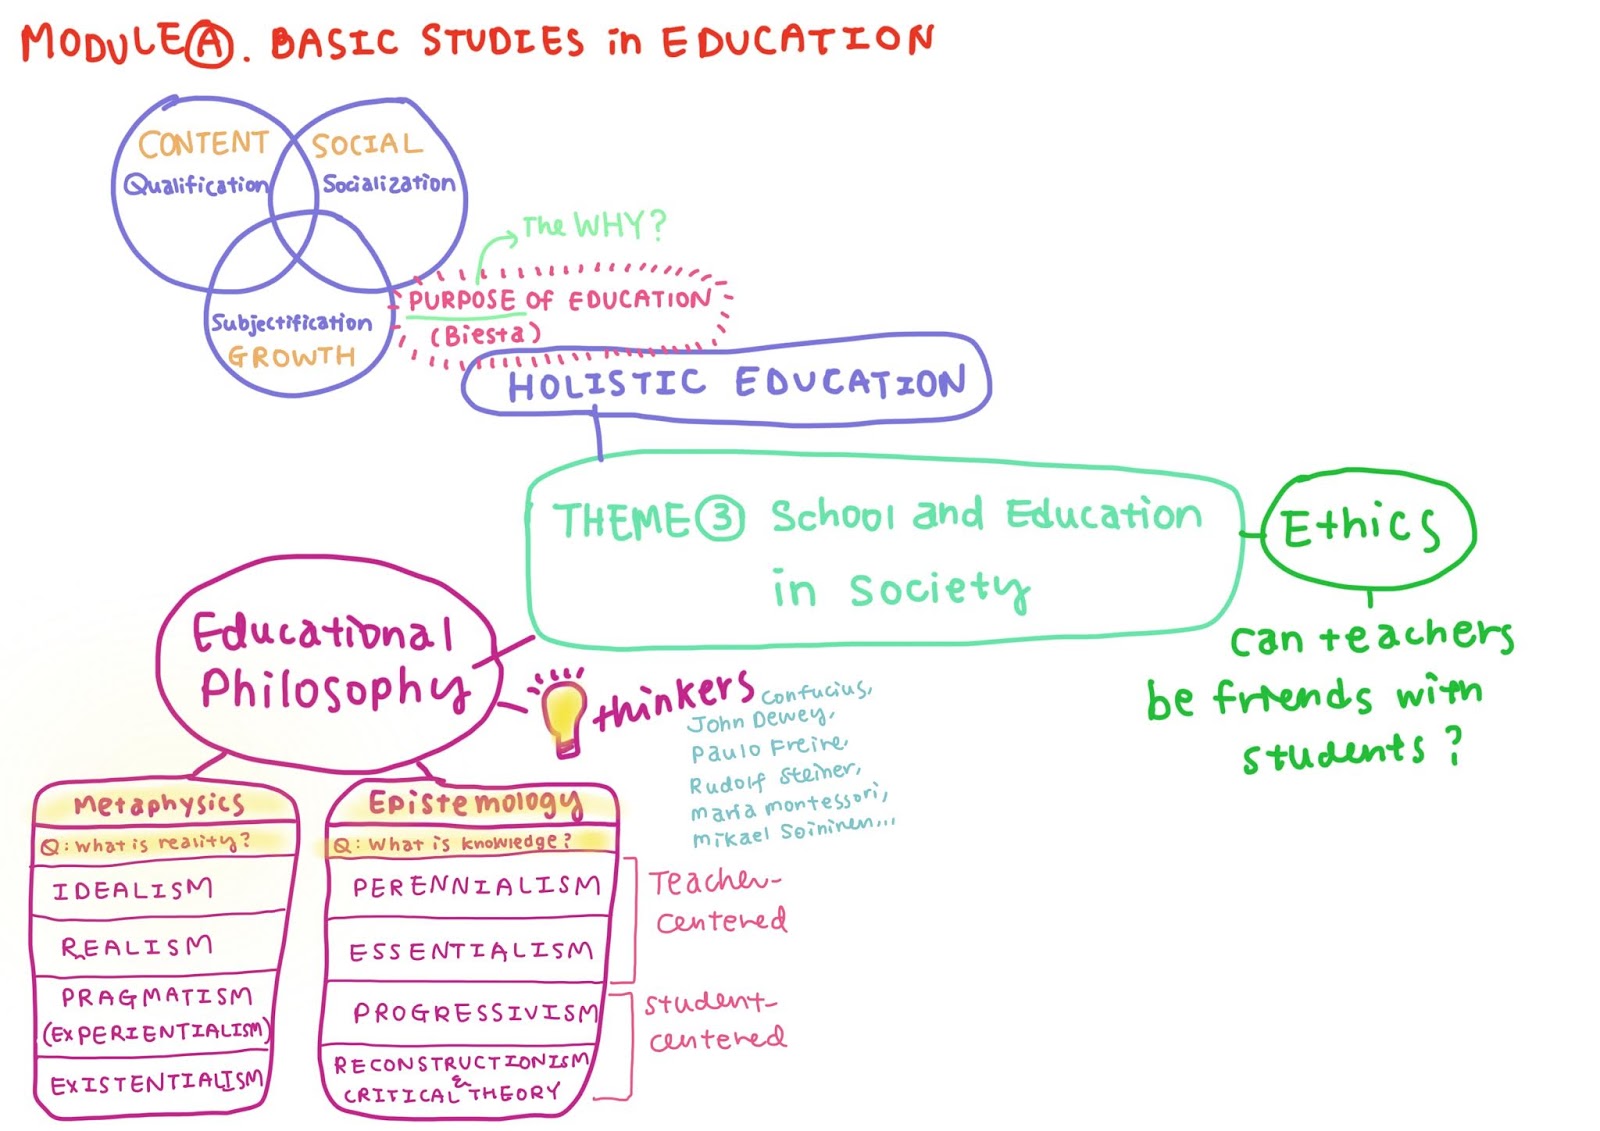 MODULE Ⓐ. BASIC STUDIES in EDUCATION
CONTENT
Qualification
SOCIAL
Socialization
Subjectification
GROWTH
The WHY?
PURPOSE OF EDUCATION
(Biesta)
HOLISTIC EDUCATION
THEME ③ School and Education
in Society
Ethics
can teachers
be friends with
students?
Educational
Philosophy
thinkers
Confucius,
John Dewey,
Paulo Freire,
Rudolf Steiner,
Maria Montessori,
Mikael Soininen...
Metaphysics
Q: What is reality?
IDEALISM
REALISM
PRAGMATISM
(EXPERIENTIALISM)
EXISTENTIALISM
Epistemology
Q: What is knowledge?
PERENNIALISM
ESSENTIALISM
PROGRESSIVISM
RECONSTRUCTIONISM
&
CRITICAL THEORY
Teacher-
centered
Student-
centered